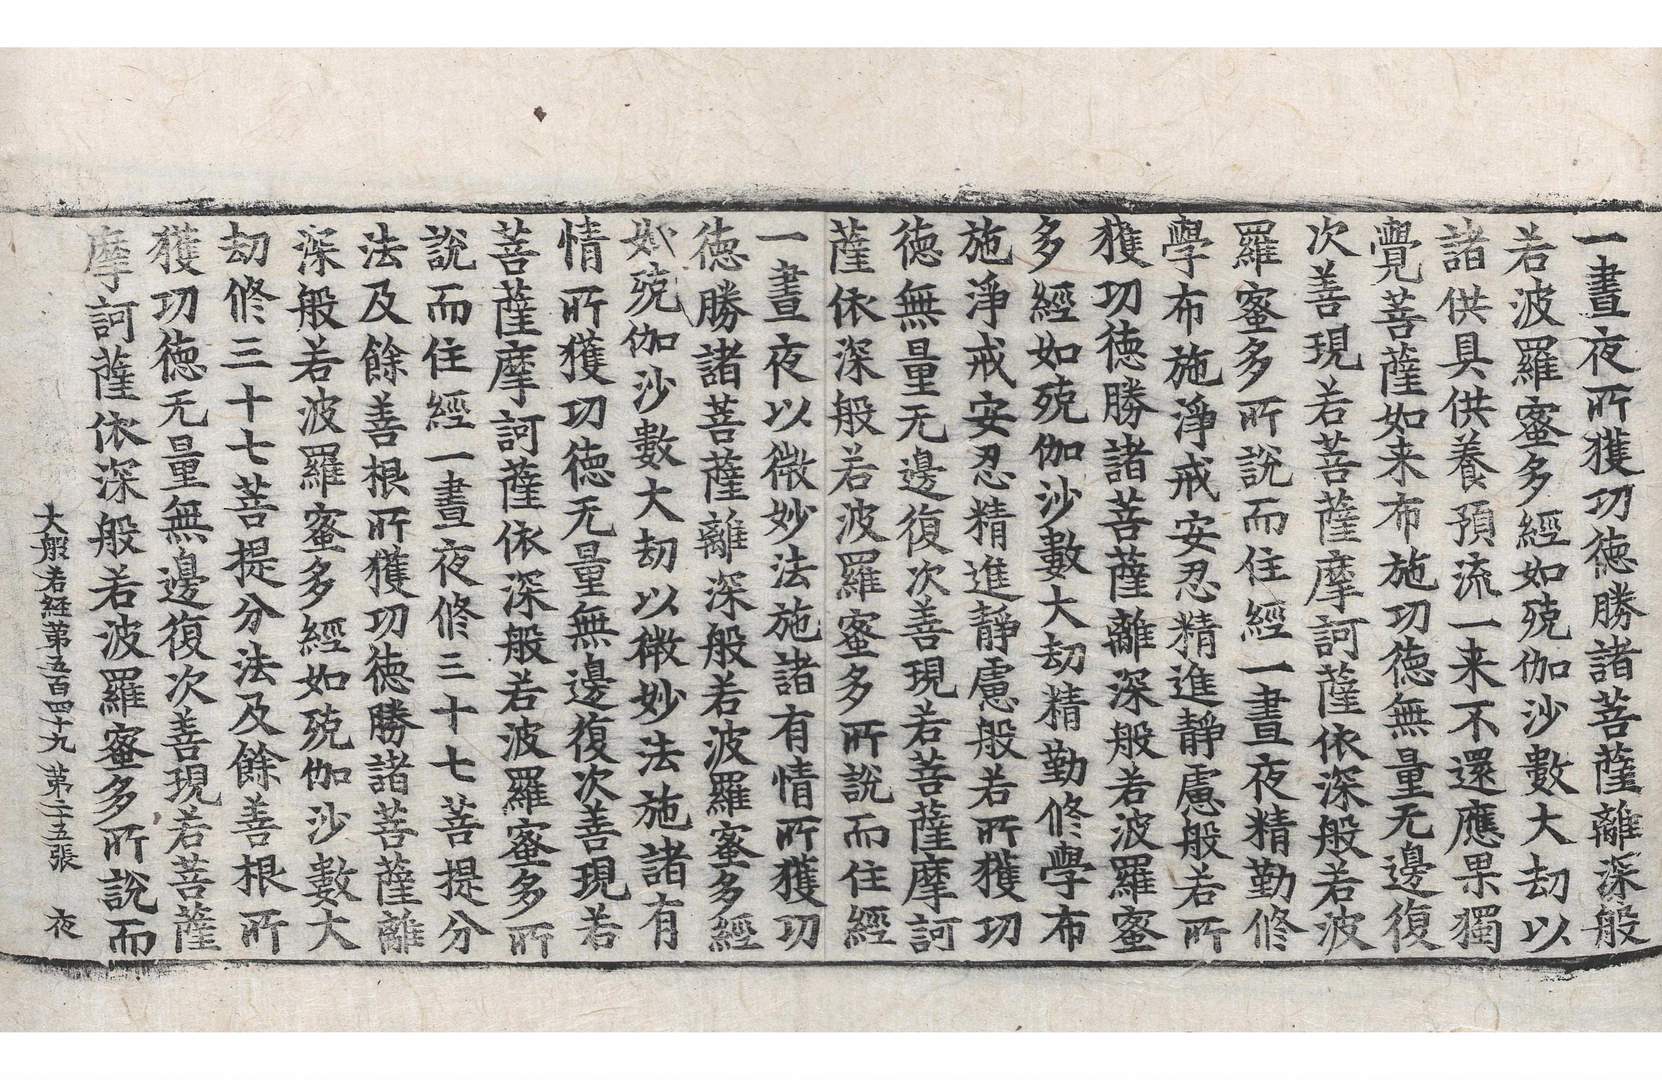 一晝夜所獲功徳勝諸菩薩離深般
若波羅蜜多經如殑伽沙數大劫以
諸供具供養預流一来不還應果獨
覺菩薩如来布施功徳無量无邊復
次善現若菩薩摩訶薩依深般若波
羅蜜多所說而住經一晝夜精勤修
學布施淨戒安忍精進靜慮般若所
獲功徳勝諸菩薩離深般若波羅蜜
多經如殑伽沙數大劫精勤修學布
施淨戒安忍精進靜慮般若所獲功
徳無量无邊復次善現若菩薩摩訶
薩依深般若波羅蜜多所說而住經
一晝夜以微妙法施諸有情所獲功
徳勝諸菩薩離深般若波羅蜜多經
如殑伽沙數大劫以微妙法施諸有
情所獲功徳无量無邊復次善現若
菩薩摩訶薩依深般若波羅蜜多所
說而住經一晝夜修三十七菩提分
法及餘善根所獲功徳勝諸菩薩離
深般若波羅蜜多經如殑伽沙數大
劫修三十七菩提分法及餘善根所
獲功徳无量無邊復次善現若菩薩
摩訶薩依深般若波羅蜜多所說而
大般若経第五百四十九 第二十五張 夜